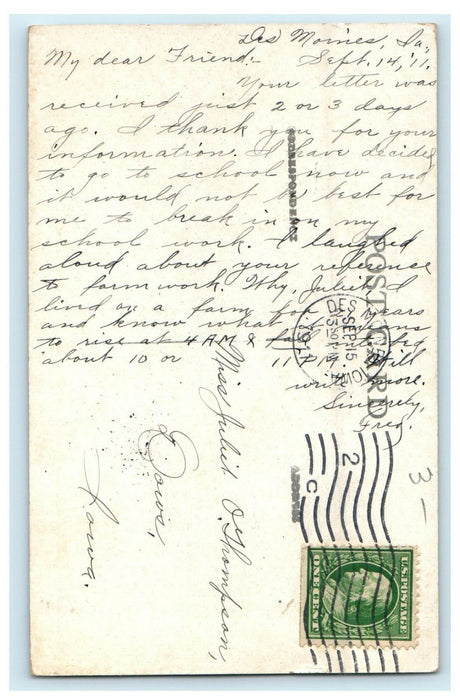 Des Moines, Ia,
Sept. 14, '11.
My dear Friend:-
Your letter was
received just 2 or 3 days
ago. I thank you for your
information. I have decided
to go to school now and
it would not be best for
me to break in on my
school work. I laughed
aloud about your reference
to farm work. Why, Juliet, I
lived on a farm for years
and know what means
to rise at 4 AM &
about 10 or 11 P.M. Will
write more.
Sincerely,
Fred.
CORRESPONDENCE
POST CARD
ADDRESS
DES MOI
SEP 15
1911
2
C
Miss Juliet O. Thompson,
Dows,
Iowa.
3-
U.S. POSTAGE
ONE CENT